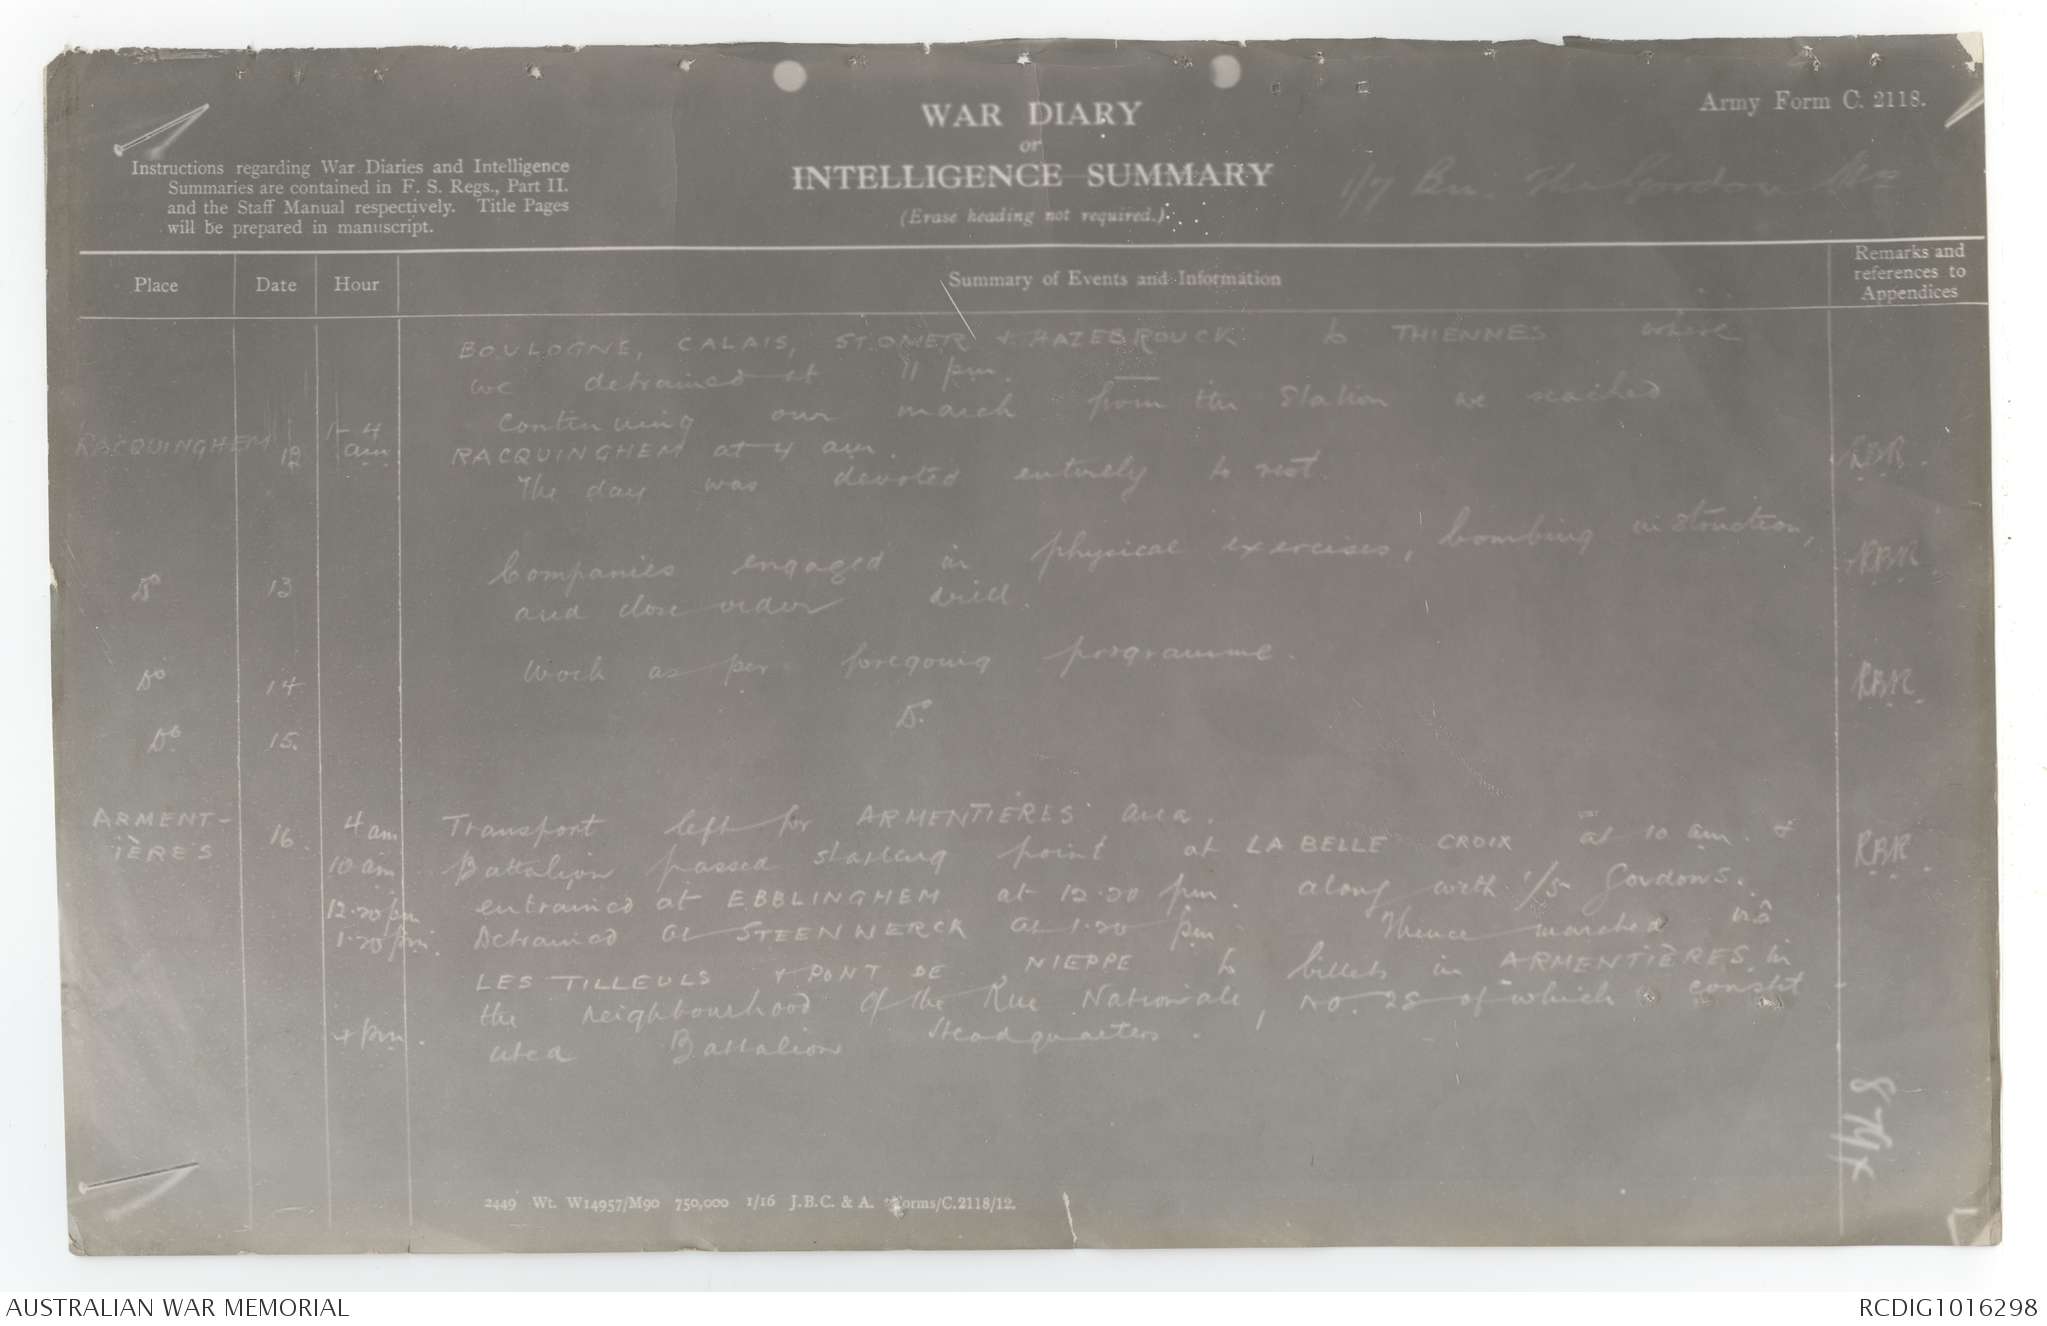 Army Form C. 2118.
WAR DIARY
or
INTELLIGENCE SUMMARY
(Erase heading not required.)
1/7 Bn. The Gordon Hrs
Instructions regarding War Diaries and Intelligence
Summaries are contained in F. S. Regs., Part II.
and the Staff Manual respectively. Title Pages
will be prepared in manuscript.
Place Date Hour Summary of Events and Information Remarks and references to Appendices
BOULOGNE, CALAIS, ST. OMER & HAZEBROUCK to THIENNES where
we detrained at 11 pm.
Continuing our march from the station we reached
RACQUINGHEM 12 1-4 am RACQUINGHEM at 4 am. RBR.
The day was devoted entirely to rest.
Do 13 Companies engaged in physical exercises, bombing instruction, RBR.
and close order drill.
Do 14 Work as per foregoing programme. RBR.
Do 15. Do.
ARMENT- 16. 4 am Transport left for ARMENTIÈRES area.
IÈRES 10 am Battalion passed starting point at LA BELLE CROIX at 10 am. & RBR.
12.20 pm entrained at EBBLINGHEM at 12.20 pm. along with 1/5 Gordons.
1.20 pm. Detrained at STEENWERCK at 1.20 pm. Thence marched via
LES TILLEULS & PONT DE NIEPPE to billets in ARMENTIÈRES in
the neighbourhood of the Rue Nationale, No. 28 of which constit-
4 pm. uted Battalion Headquarters.
2449 Wt. W14957/M90 750,000 1/16 J.B.C. & A. Forms/C.2118/12.
AUSTRALIAN WAR MEMORIAL
RCDIG1016298